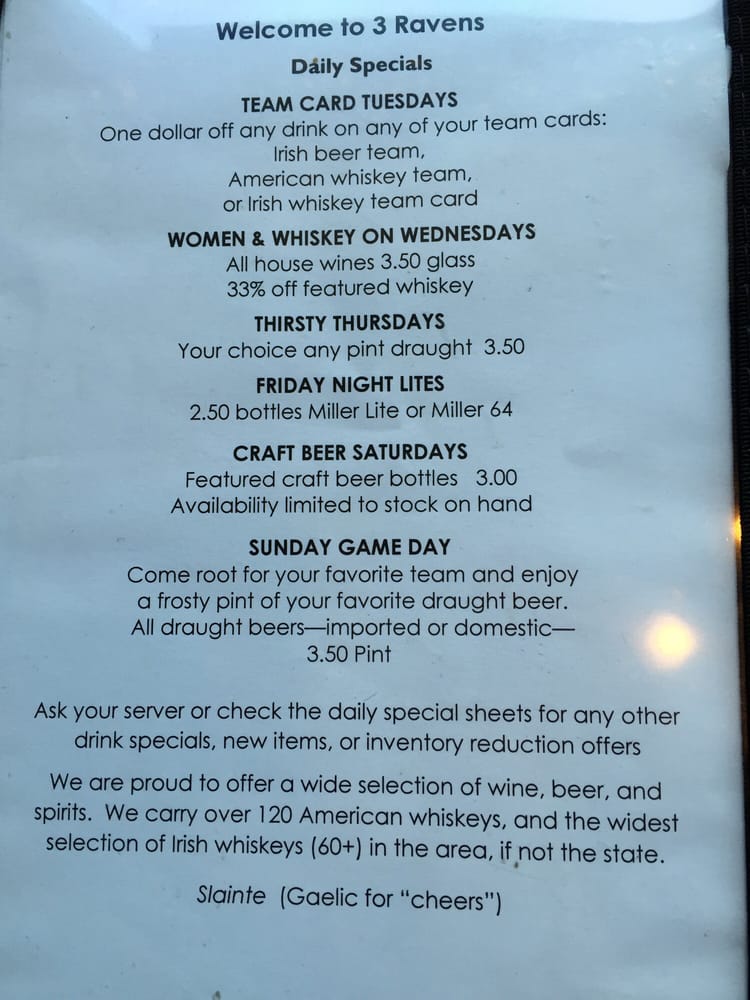 Welcome to 3 Ravens
Daily Specials
TEAM CARD TUESDAYS
One dollar off any drink on any of your team cards:
Irish beer team,
American whiskey team,
or Irish whiskey team card
WOMEN & WHISKEY ON WEDNESDAYS
All house wines 3.50 glass
33% off featured whiskey
THIRSTY THURSDAYS
Your choice any pint draught 3.50
FRIDAY NIGHT LITES
2.50 bottles Miller Lite or Miller 64
CRAFT BEER SATURDAYS
Featured craft beer bottles 3.00
Availability limited to stock on hand
SUNDAY GAME DAY
Come root for your favorite team and enjoy
a frosty pint of your favorite draught beer.
All draught beers—imported or domestic—
3.50 Pint
Ask your server or check the daily special sheets for any other
drink specials, new items, or inventory reduction offers
We are proud to offer a wide selection of wine, beer, and
spirits. We carry over 120 American whiskeys, and the widest
selection of Irish whiskeys (60+) in the area, if not the state.
Slainte (Gaelic for "cheers")